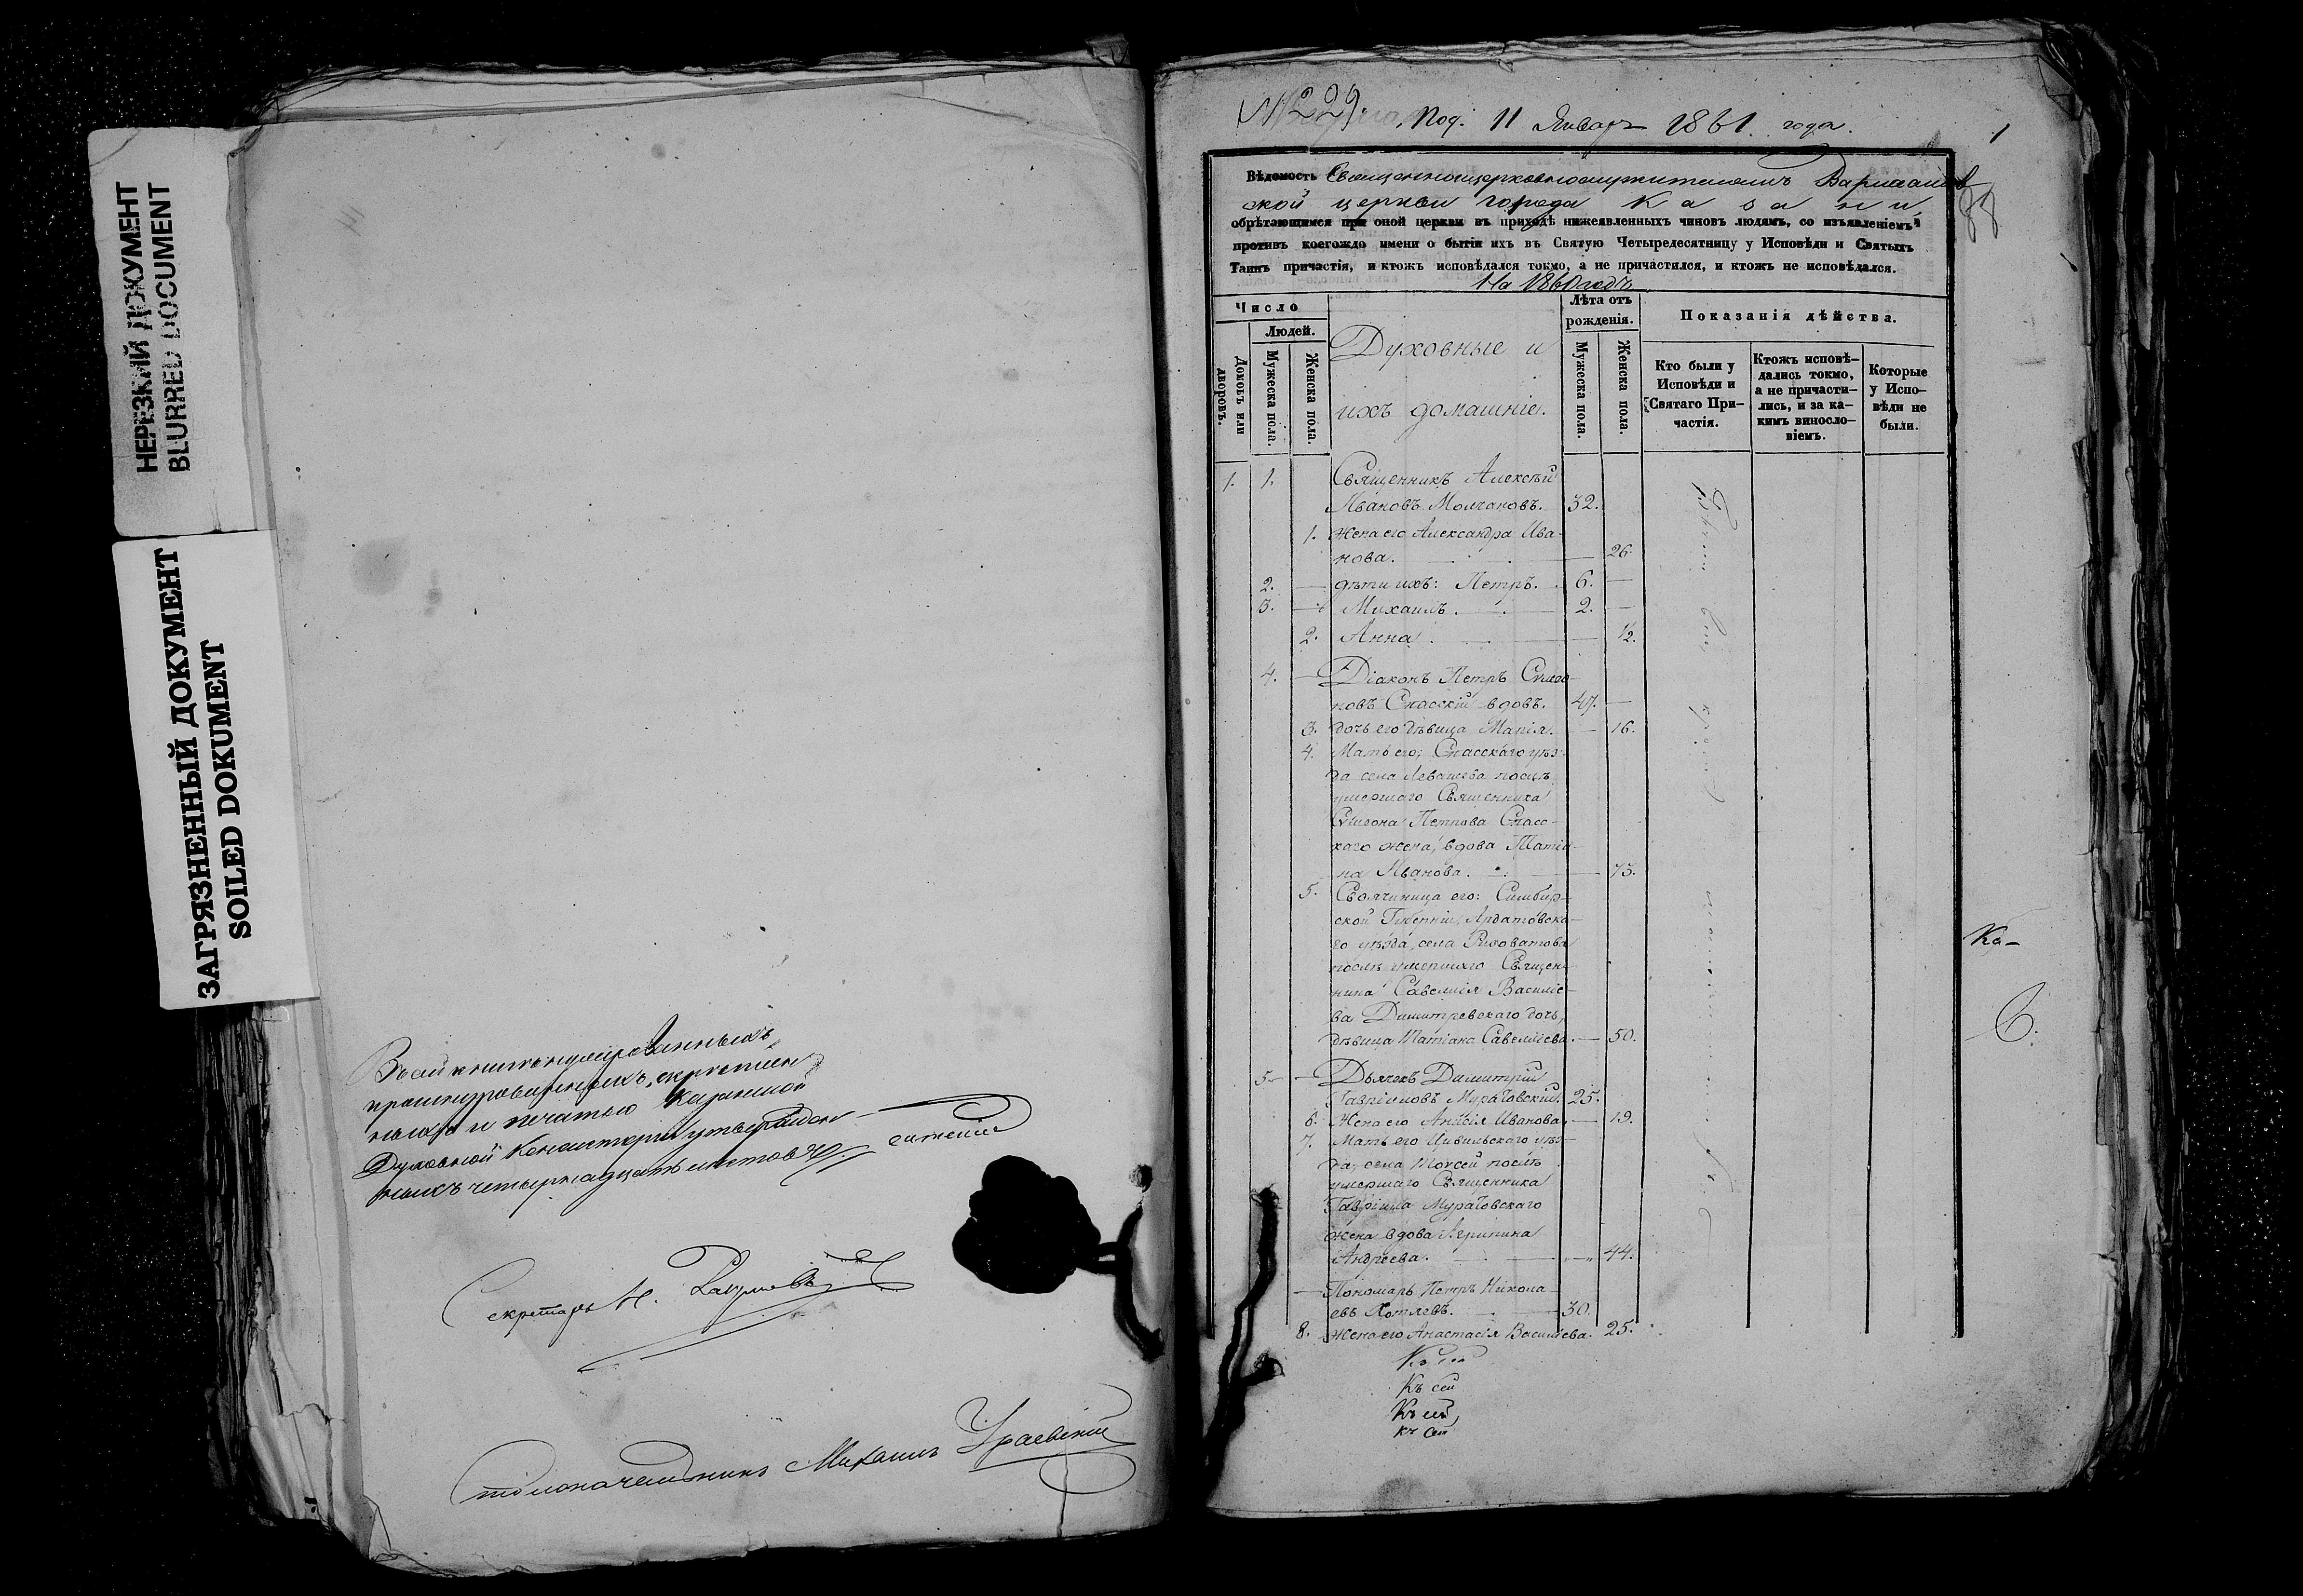 НЕРЕЗКИЙ ДОКУМЕНТ
BLURRED DOCUMENT
ЗАГРЯЗНЕННЫЙ ДОКУМЕНТ
SOILED DOKUMENT
В сей книге нумерованныхъ
прошнурованныхъ, скреплен
ныхъ и печатью Казанской
Духовной Консисторіи утвержден
ныхъ четырнадцать листовъ
Секретарь Н.
Столоначальникъ Михаилъ
№ 229. Под. 11 Января 1861. года.
1
Вѣдомость Священноцерковнослужителямъ Варлаамов
ской церкви города Казани,
обрѣтающимся при оной церкви въ приходѣ нижеявленныхъ чиновъ людямъ, со изъявленіемъ
противъ коегождо имени о бытіи ихъ въ Святую Четыредесятницу у Исповѣди и Святыхъ
Таинъ причастія, и ктожъ исповѣдался токмо, а не причастился, и ктожъ не исповѣдался.
На 1860 годъ
Число
Людей.
Домовъ или дворовъ.
Мужеска пола.
Женска пола.
Духовные и
ихъ домашніе.
Лѣта отъ рожденія.
Мужеска пола.
Женска пола.
Показанія дѣйства.
Кто были у Исповѣди и Святаго Причастія.
Ктожъ исповѣ-дались токмо, а не причасти-лись, и за ка-кимъ виносло-віемъ.
Которые у Испо-вѣди не были.
1. 1. Священникъ Алексѣй
Ивановъ Молчановъ. 32.
1. Жена его Александра Ива-
нова. 26.
2. дѣти ихъ: Петръ. 6.
3. Михаилъ. 2.
2. Анна. ½.
4. Діаконъ Петръ Симео-
новъ Спасскій вдовъ. 47.
3. дочь его дѣвица Марія. 16.
4. Мать его, Спасскаго уѣз-
да села Левашева послѣ
умершаго Священника
Симеона Петрова Спас-
каго жена, вдова Татія-
на Иванова. 73.
5. Своячиница его: Симбир-
ской Губерніи, Ардатовска-
го уѣзда, села
послѣ умершаго Священ-
ника Савелія Василіе-
ва Димитревскаго дочь,
дѣвица Татіана Савеліева. 50.
5. Дьячекъ Димитрій
Гавріиловъ Муратовскій. 25.
6. Жена его Анисія Иванова. 19.
7. Мать его Цивильскаго уѣз-
да, села Тоисей послѣ
умершаго Священника
Гавріила Муратовскаго
жена вдова Агрипина
Андреева. 44.
Пономарь Петръ Никола-
евъ Хотлевъ. 30.
8. Жена его Анастасія Василіева. 25.
Ка-
Къ сей
Къ сей
Къ сей
къ сей